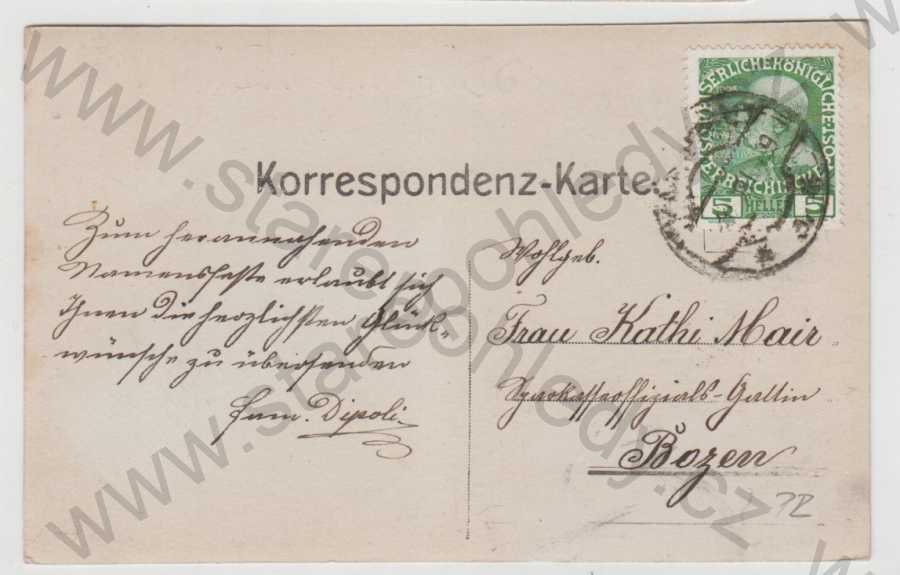 Korrespondenz-Karte.
Zum herannahenden
Namensfeste erlaubt sich
Ihnen die herzlichsten Glück-
wünsche zu übersenden
Fam. Dipoli
KAISERLICHE KÖNIGLICHE
ÖSTERREICHISCHE
5 HELLER 5
Wohlgeb.
Frau Kathi Mair
Sparkasseoffizials-Gattin
Bozen
www.starepohledy.cz
www.starepohledy.cz